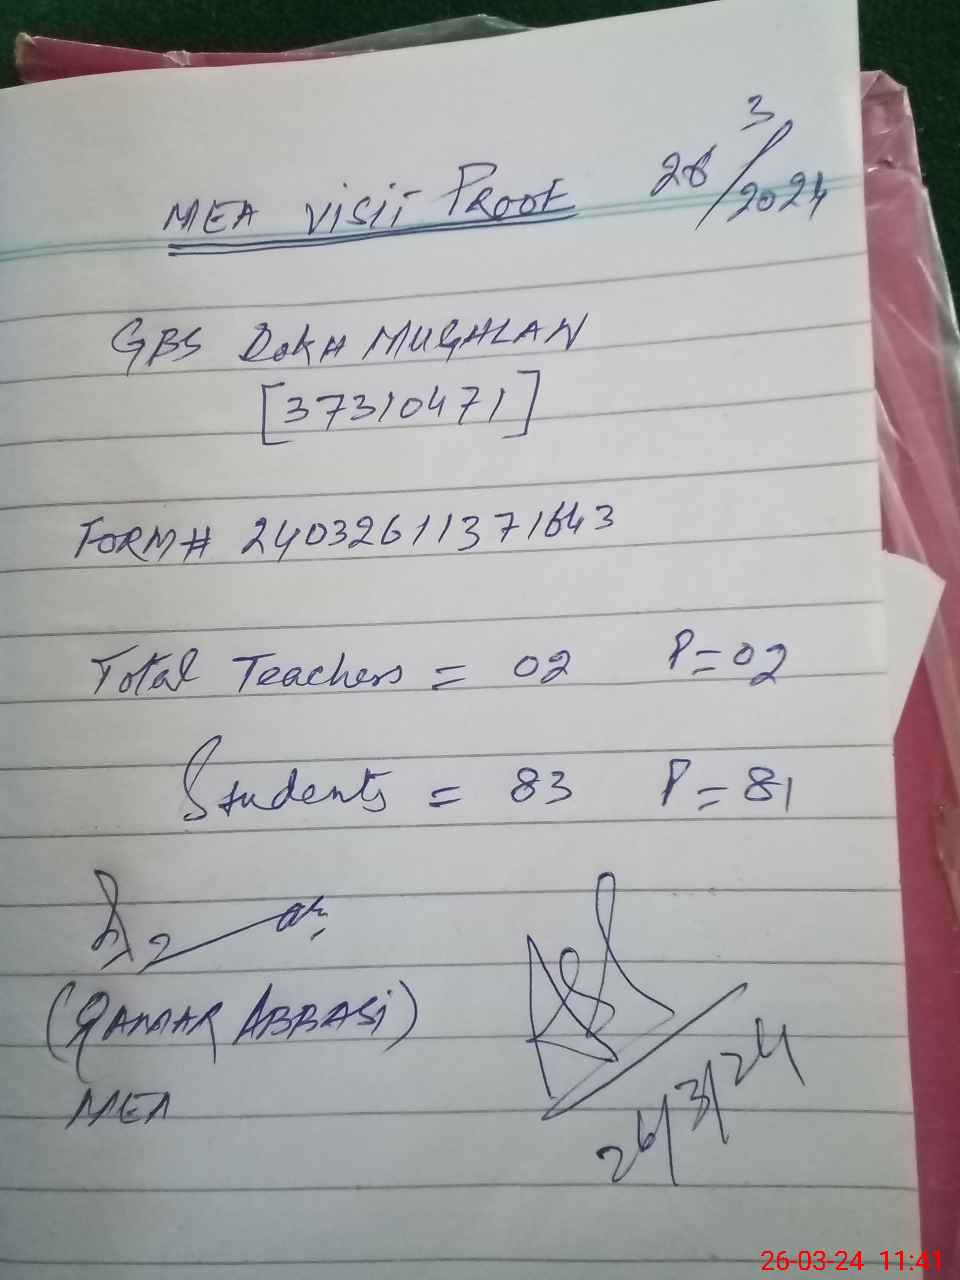 MEA VISIT PROOF 26/3/2024
GBS DOKH MUGHLAN
[37310471]
FORM# 24032611371643
Total Teachers = 02 P=02
Students = 83 P=81
(QAMAR ABBASI)
MEA
26/3/24
26-03-24 11:41